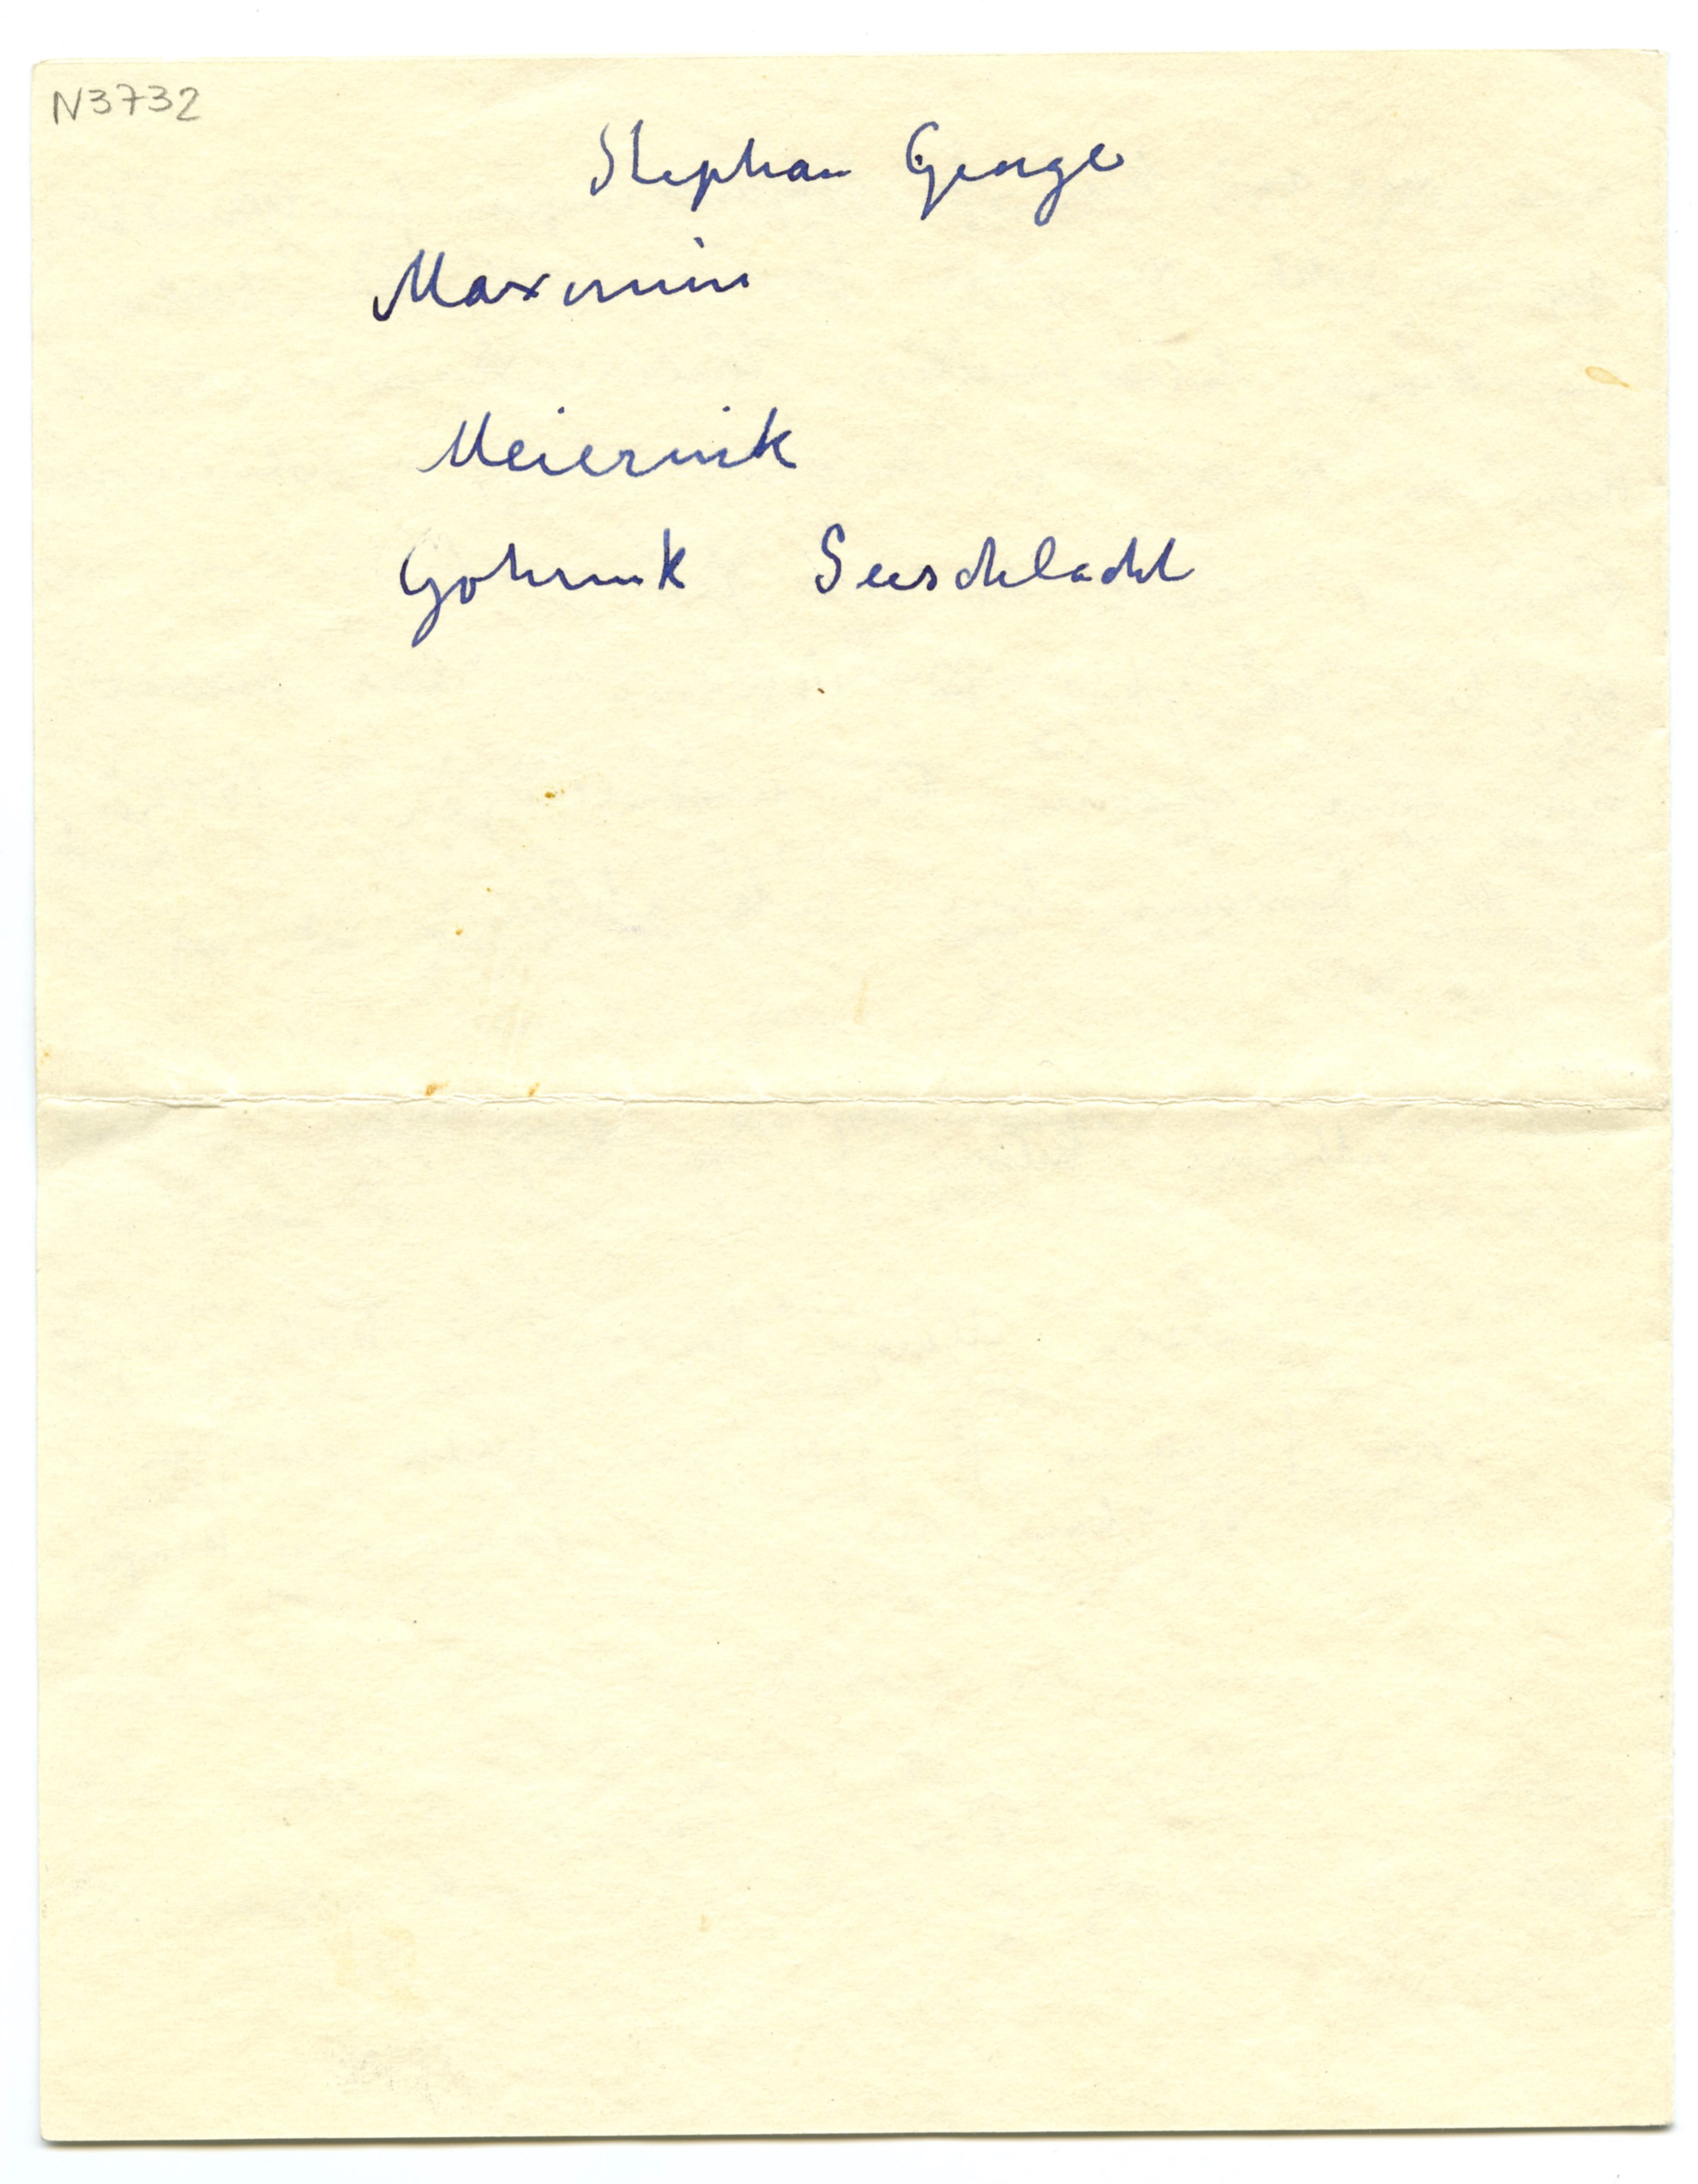 N3732
Stephan George
Maximin
Meierink
Seeschlacht